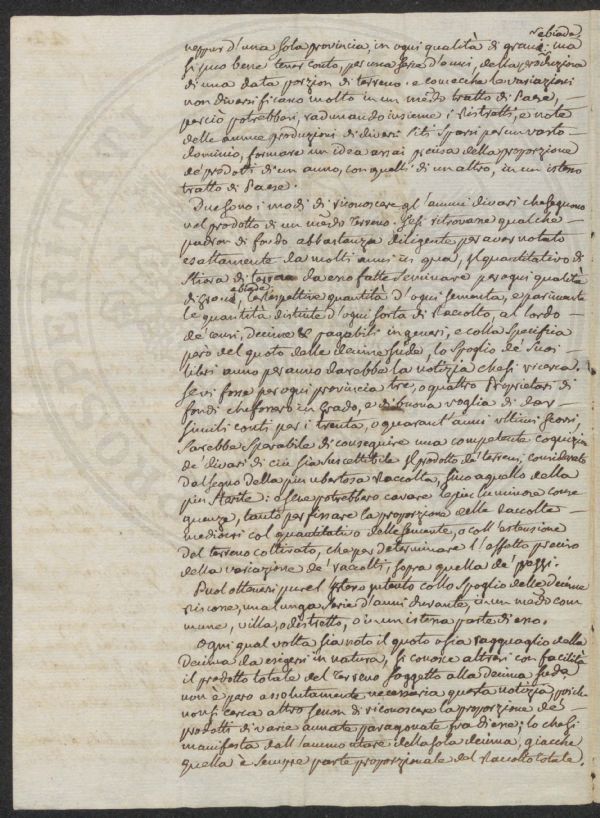 e biade
neppur d'una sola provincia, in ogni qualità di grani: ma
si può bene tener conto, per una serie d'anni, della produzione
di una data porzion di terreno. e comecchè le variazioni
non diversificano molto in un medo tratto di Paese,
perciò potrebbersi, radunando insieme i ristretti, e note
delle annue produzioni di diversi siti sparsi per un vasto
dominio, formare un idea assai precisa della proporzione
de' prodotti di un anno, con quelli di un altro, in un istesso
tratto di Paese.
Due sono i modi di riconoscere gl'annui divari che seguono
nel prodotto di un medo terreno. Se si ritrovano qualche
padron di fondo abbastanza diligente, per aver notato
esattamente da molti anni in qua, il quantitativo di
Stiora di terreno da esso fatte seminare per ogni qualità
di grani, e biade, le rispettive quantità d'ogni sementa, e parimente
le quantità distinte d'ogni sorta di raccolto, al lordo
de' censi, decime &c pagabili in generi, e colla specifica
però del quoto delle decime sude, lo spoglio de' suoi
libri anno per anno darebbe la notizia che si ricerca.
Se vi fosse per ogni provincia tre, o quattro Proprietari di
fondi che fossero in grado, e di buona voglia di dar
simili conti per i trenta, o quarant'anni ultimi scorsi,
sarebbe sperabile di conseguire una competente cognizione
de' divari di cui sia suscettibile il prodotto de' terreni, considerato
dal segno della più ubertosa raccolta, sino a quello della
più sterile: e se ne potrebbero cavare le più luminose conse
guenze, tanto per fissare la proporzione delle raccolte
mediocri col quantitativo delle semente, o coll'estensione
del terreno coltivato, che per determinare l'effetto preciso
della variazione de' raccolti, sopra quella de' prezzi.
Puol ottenersi pure l'istesso intento collo spoglio delle decime
riscosse, una lunga serie d'anni durante, in un medo com
mune, villa, o distretto, o in un istessa parte di esso.
Ogni qual volta sia noto il quoto o sia ragguaglio della
Decima da esigersi in natura, si conosce altresì con facilità
il prodotto totale del terreno soggetto alla decima suda
non è però assolutamente necessaria questa notizia, poichè
non si cerca altro se non di riconoscere la proporzione de'
prodotti di varie annate paragonate fra di esse; lo che si
manifesta dall'ammontare della sola decima, giacchè
quella è sempre parte proporzionale del raccolto totale.